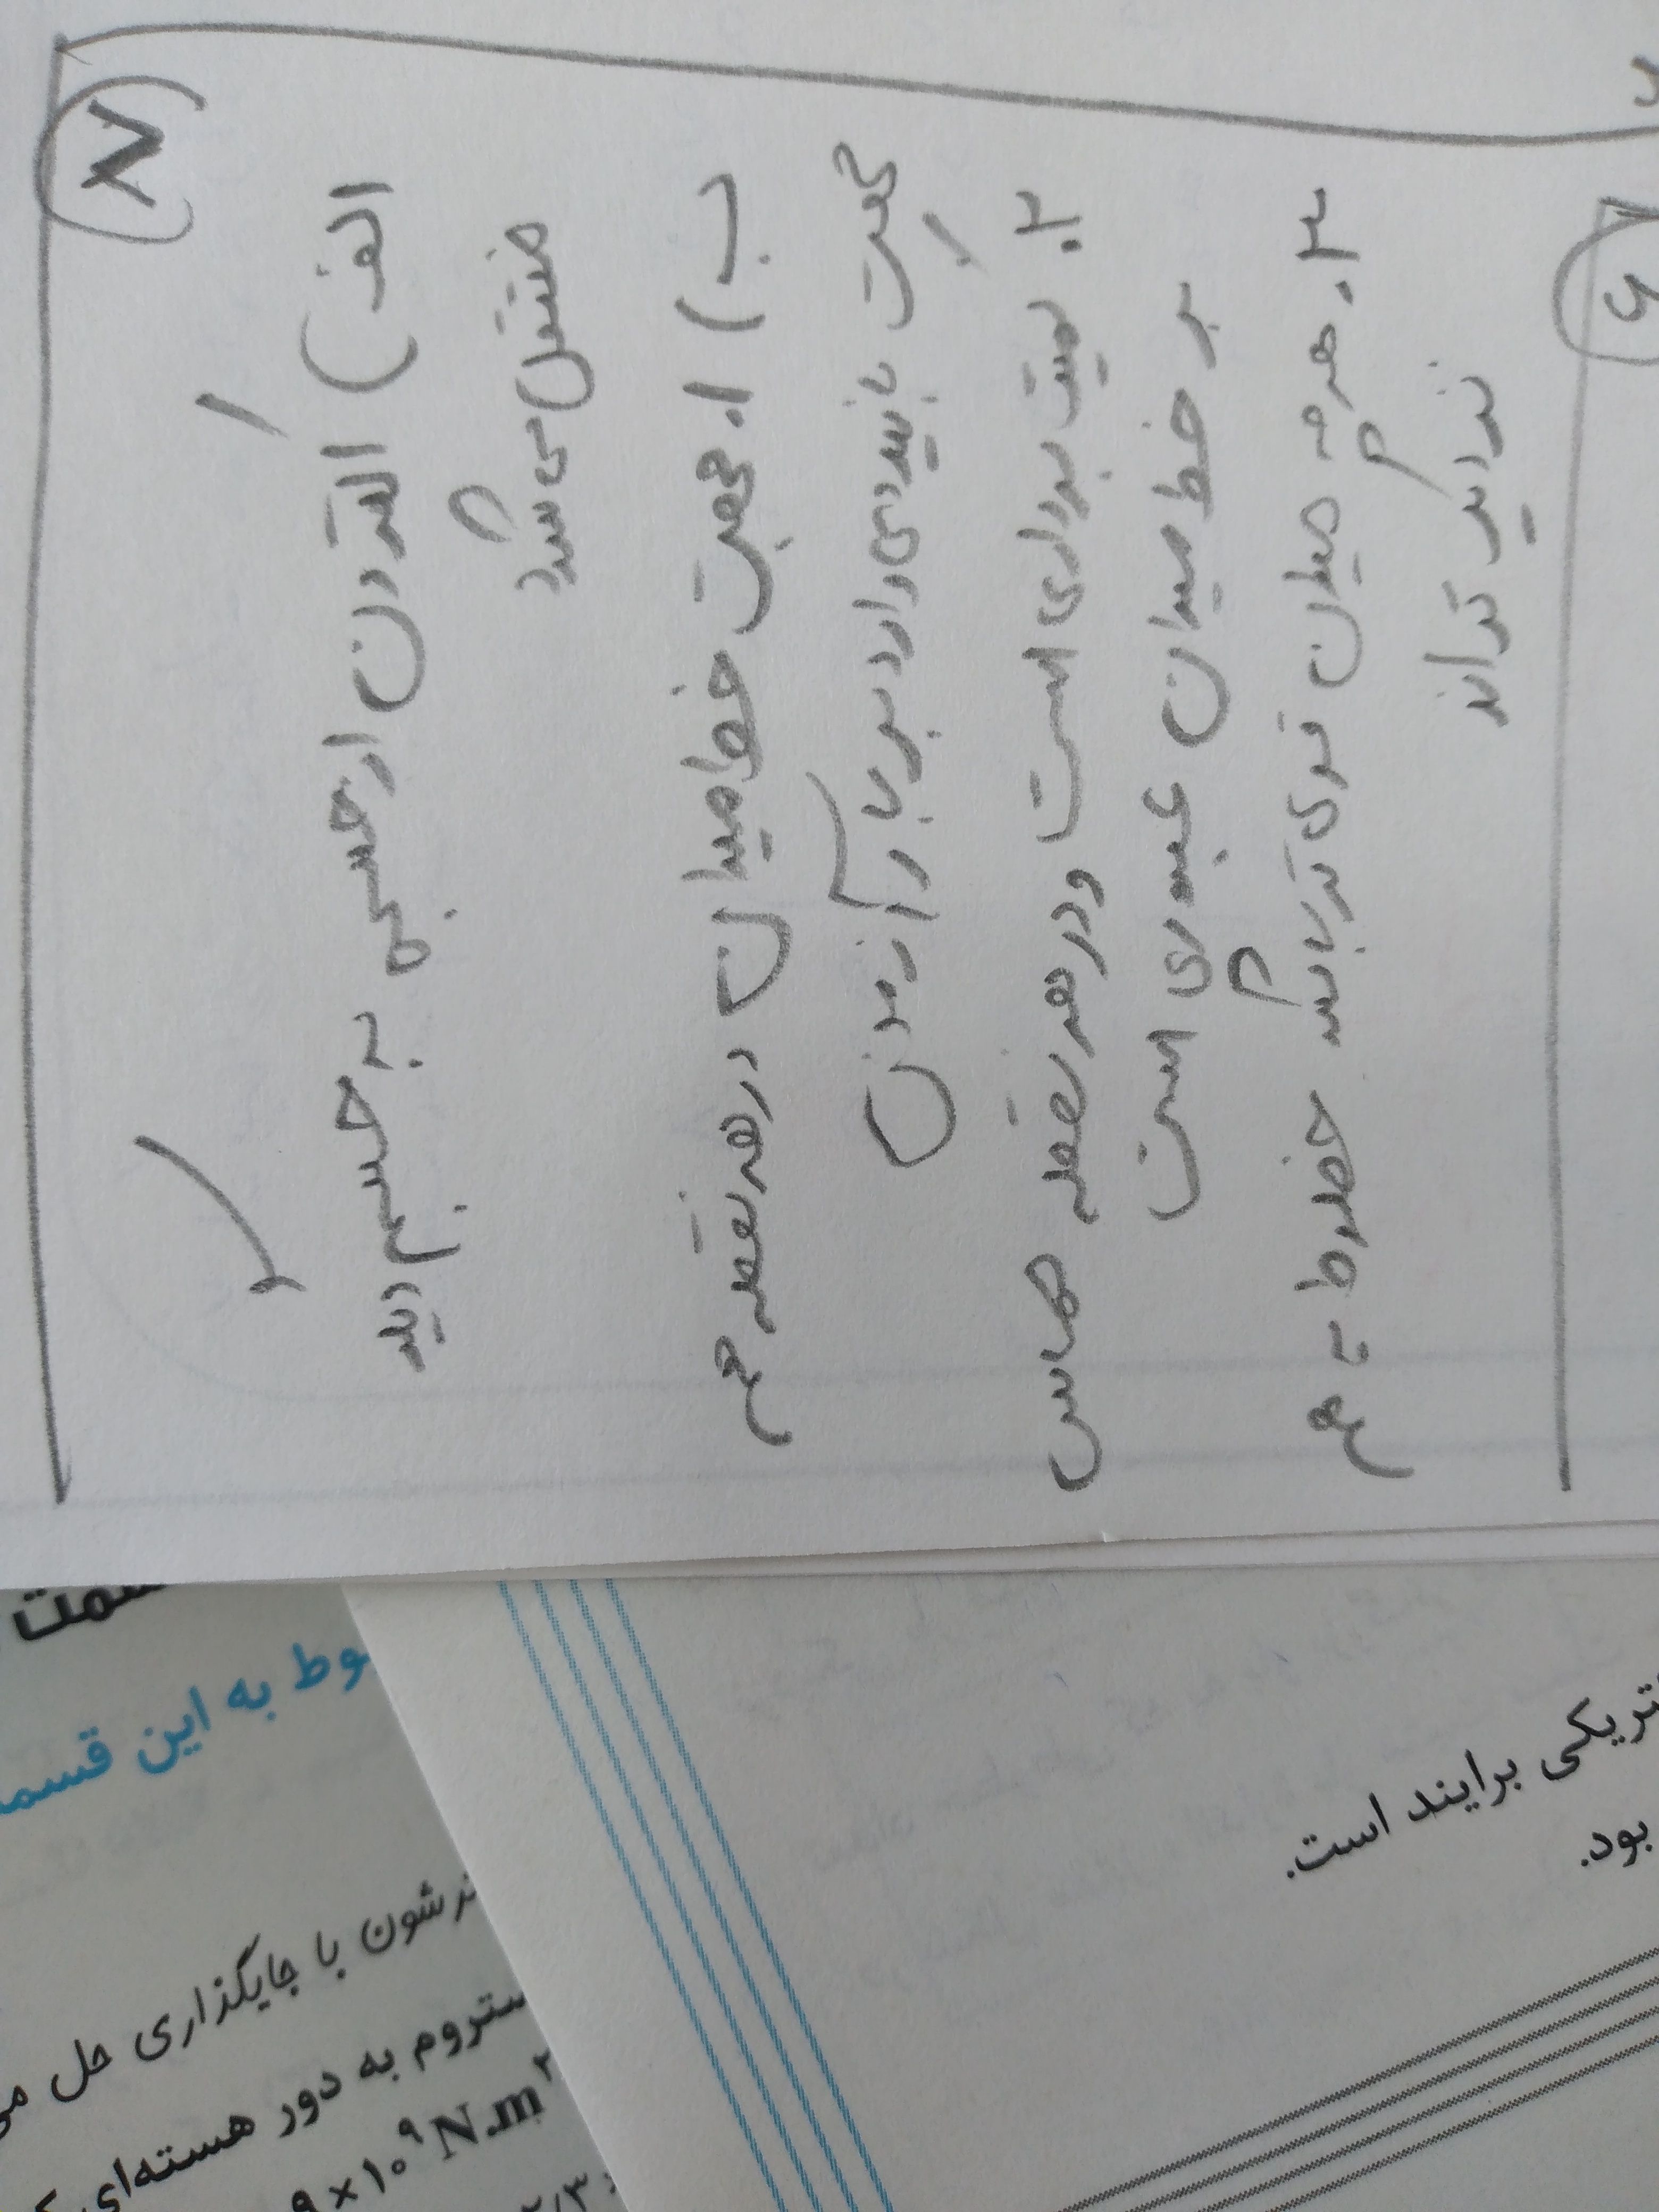 ۸
الف) الکترون از جسمی به جسم دیگر
منتقل می شود
ب) ۱. جهت خط میدان در هر نقطه هم
جهت با نیروی وارد بر بار آزمون
۲. کمیت برداری است و در هر نقطه مماس
بر خط میدان عبوری است
۳. هرچه میدان قوی تر باشد خطوط به هم
نزدیک تراند
۶
سمت
وط به این قسم
شون با جایگذاری حل می
ستروم به دور هسته‌ای
۹×۱۰⁹ N.m²
تریکی برایند است.
بود.